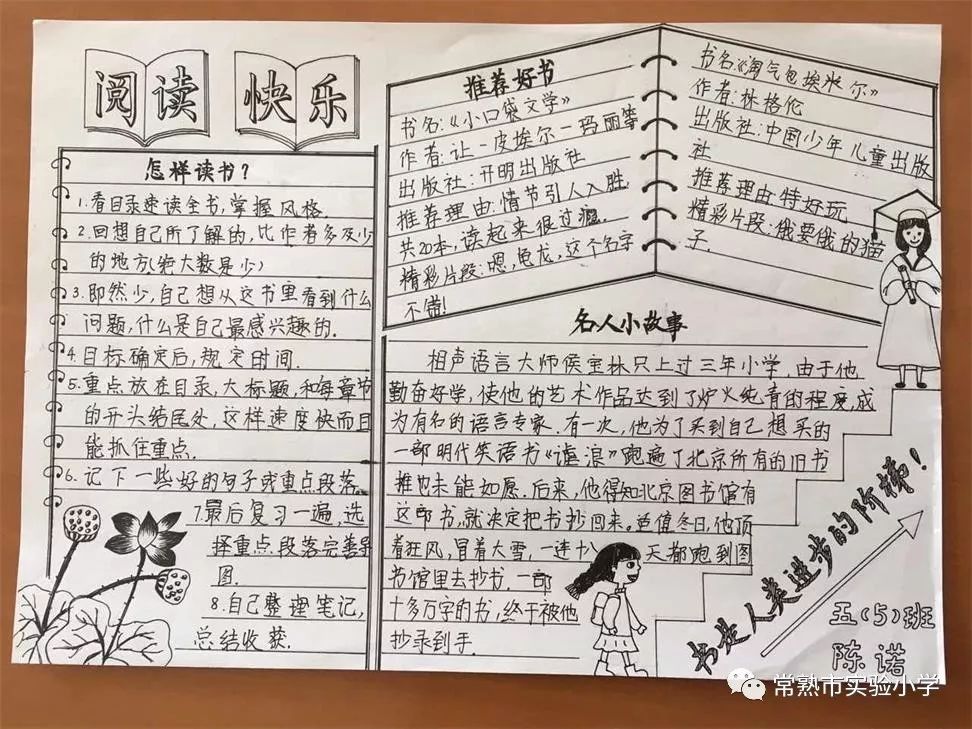 阅读 快乐
怎样读书？
1.看目录速读全书,掌握风格.
2.回想自己所了解的,比作者多及少
的地方(绝大数是少)
3.即然少,自己想从这书里看到什么
问题,什么是自己最感兴趣的.
4.目标确定后,规定时间.
5.重点放在目录,大标题,和每章节
的开头结尾处,这样速度快而且
能抓住重点.
6.记下一些好的句子或重点段落.
7.最后复习一遍,选
择重点段落完善导
图.
8.自己整理笔记,
总结收获.
推荐好书
书名:《小口袋文学》
作者:让一皮埃尔一玛丽等
出版社:开明出版社
推荐理由:情节引人入胜,
共20本,读起来很过瘾.
精彩片段:嗯,兔龙,这个名字
不错!
书名:《淘气包埃米尔》
作者:林格伦
出版社:中国少年儿童出版
社
推荐理由:特好玩
精彩片段:俄要俄的猫
子.
名人小故事
相声语言大师侯宝林只上过三年小学,由于他
勤奋好学,使他的艺术作品达到了炉火纯青的程度,成
为有名的语言专家.有一次,他为了买到自己想买的
一部明代笑语书《谑浪》跑遍了北京所有的旧书
摊也未能如愿.后来,他得知北京图书馆有
这部书,就决定把书抄回来.适值冬日,他顶
着狂风,冒着大雪,一连十八天都跑到图
书馆里去抄书.一部
十多万字的书,终于被他
抄录到手.
书是人类进步的阶梯!
五(5)班
陈诺
常熟市实验小学